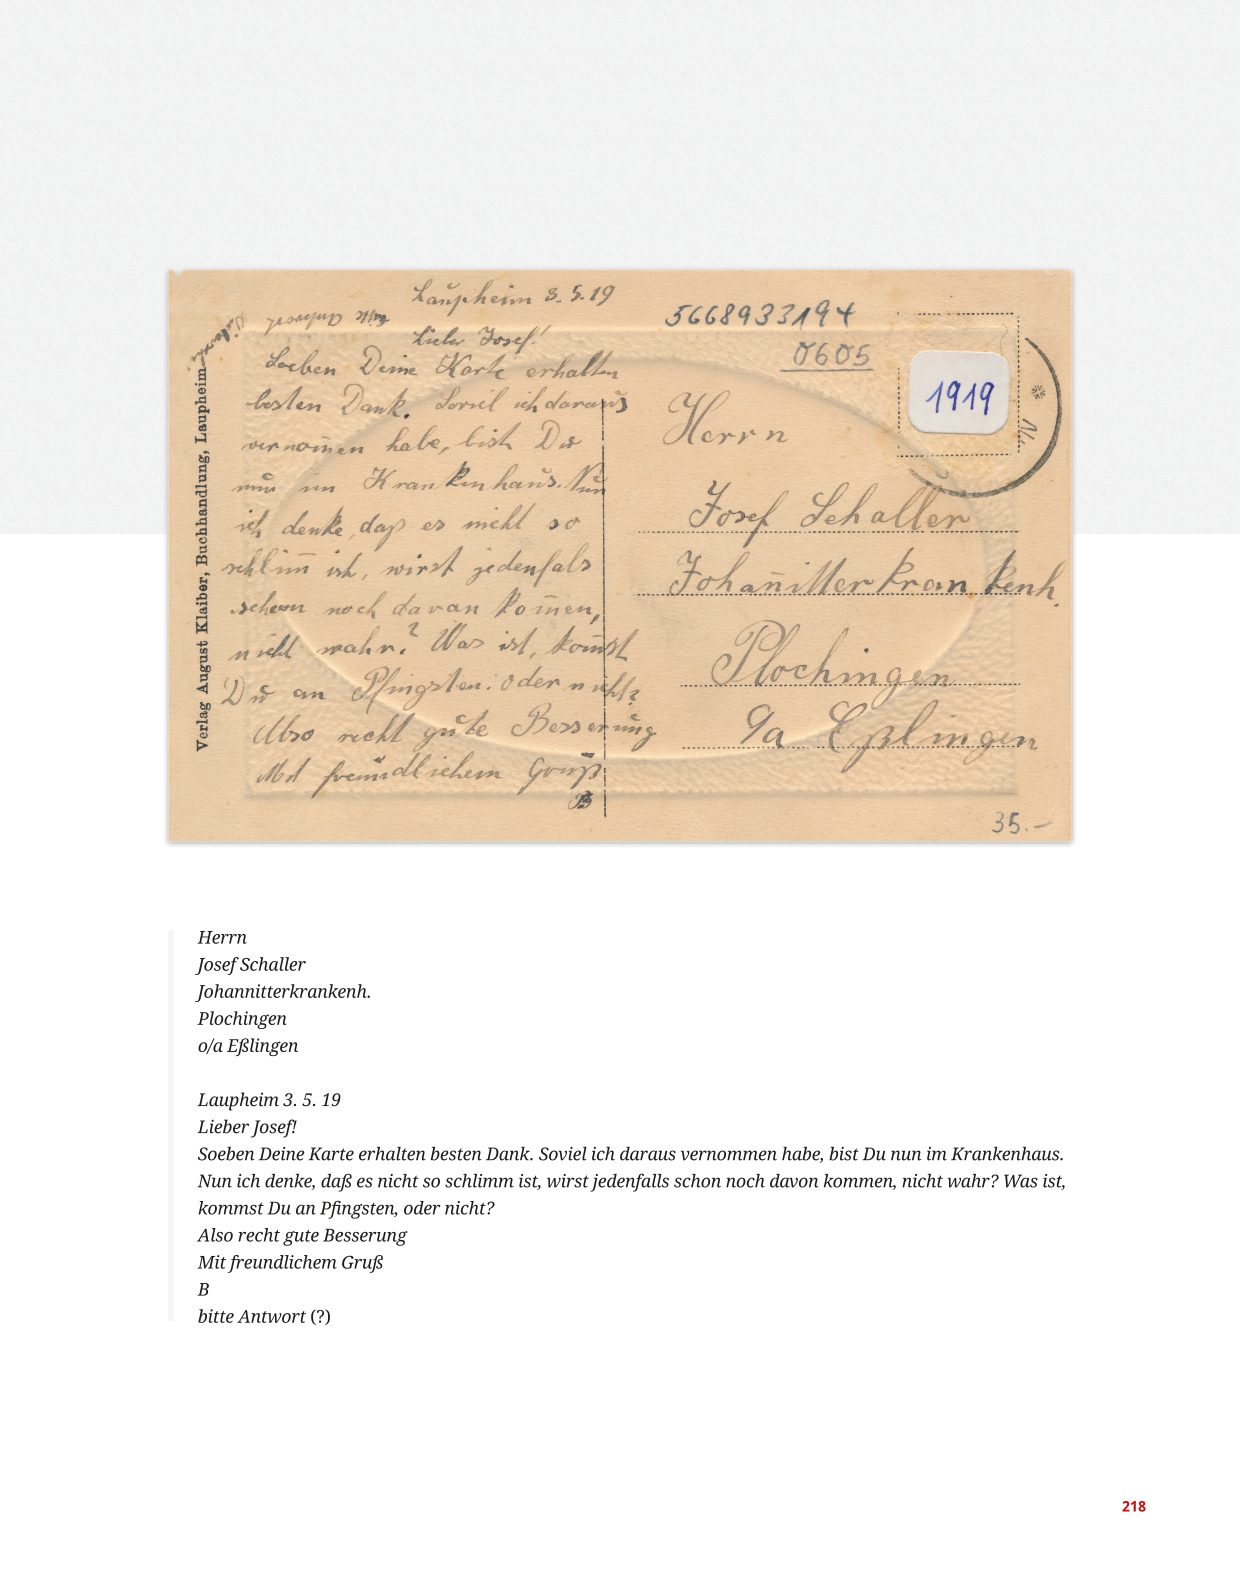 Laupheim 3. 5. 19
bitte Antwort
Lieber Josef!
Soeben Deine Karte erhalten
besten Dank. Soviel ich daraus
vernom̄en habe, bist Du
nun im Krankenhaus. Nun
ich denke, daß es nicht so
schlim̄ ist, wirst jedenfals
schon noch davan kom̄en,
nicht wahr? Was ist, kom̄st
Du an Pfingsten. oder nicht?
Also recht gute Besserung
Mit freundlichem Gruß
B
Verlag August Klaiber, Buchhandlung, Laupheim
5668933194
0605
1919
Herrn
Josef Schaller
Johan̄itterkrankenh.
Plochingen
o/a Eßlingen
35.–
Herrn
Josef Schaller
Johannitterkrankenh.
Plochingen
o/a Eßlingen
Laupheim 3. 5. 19
Lieber Josef!
Soeben Deine Karte erhalten besten Dank. Soviel ich daraus vernommen habe, bist Du nun im Krankenhaus.
Nun ich denke, daß es nicht so schlimm ist, wirst jedenfalls schon noch davon kommen, nicht wahr? Was ist,
kommst Du an Pfingsten, oder nicht?
Also recht gute Besserung
Mit freundlichem Gruß
B
bitte Antwort (?)
218